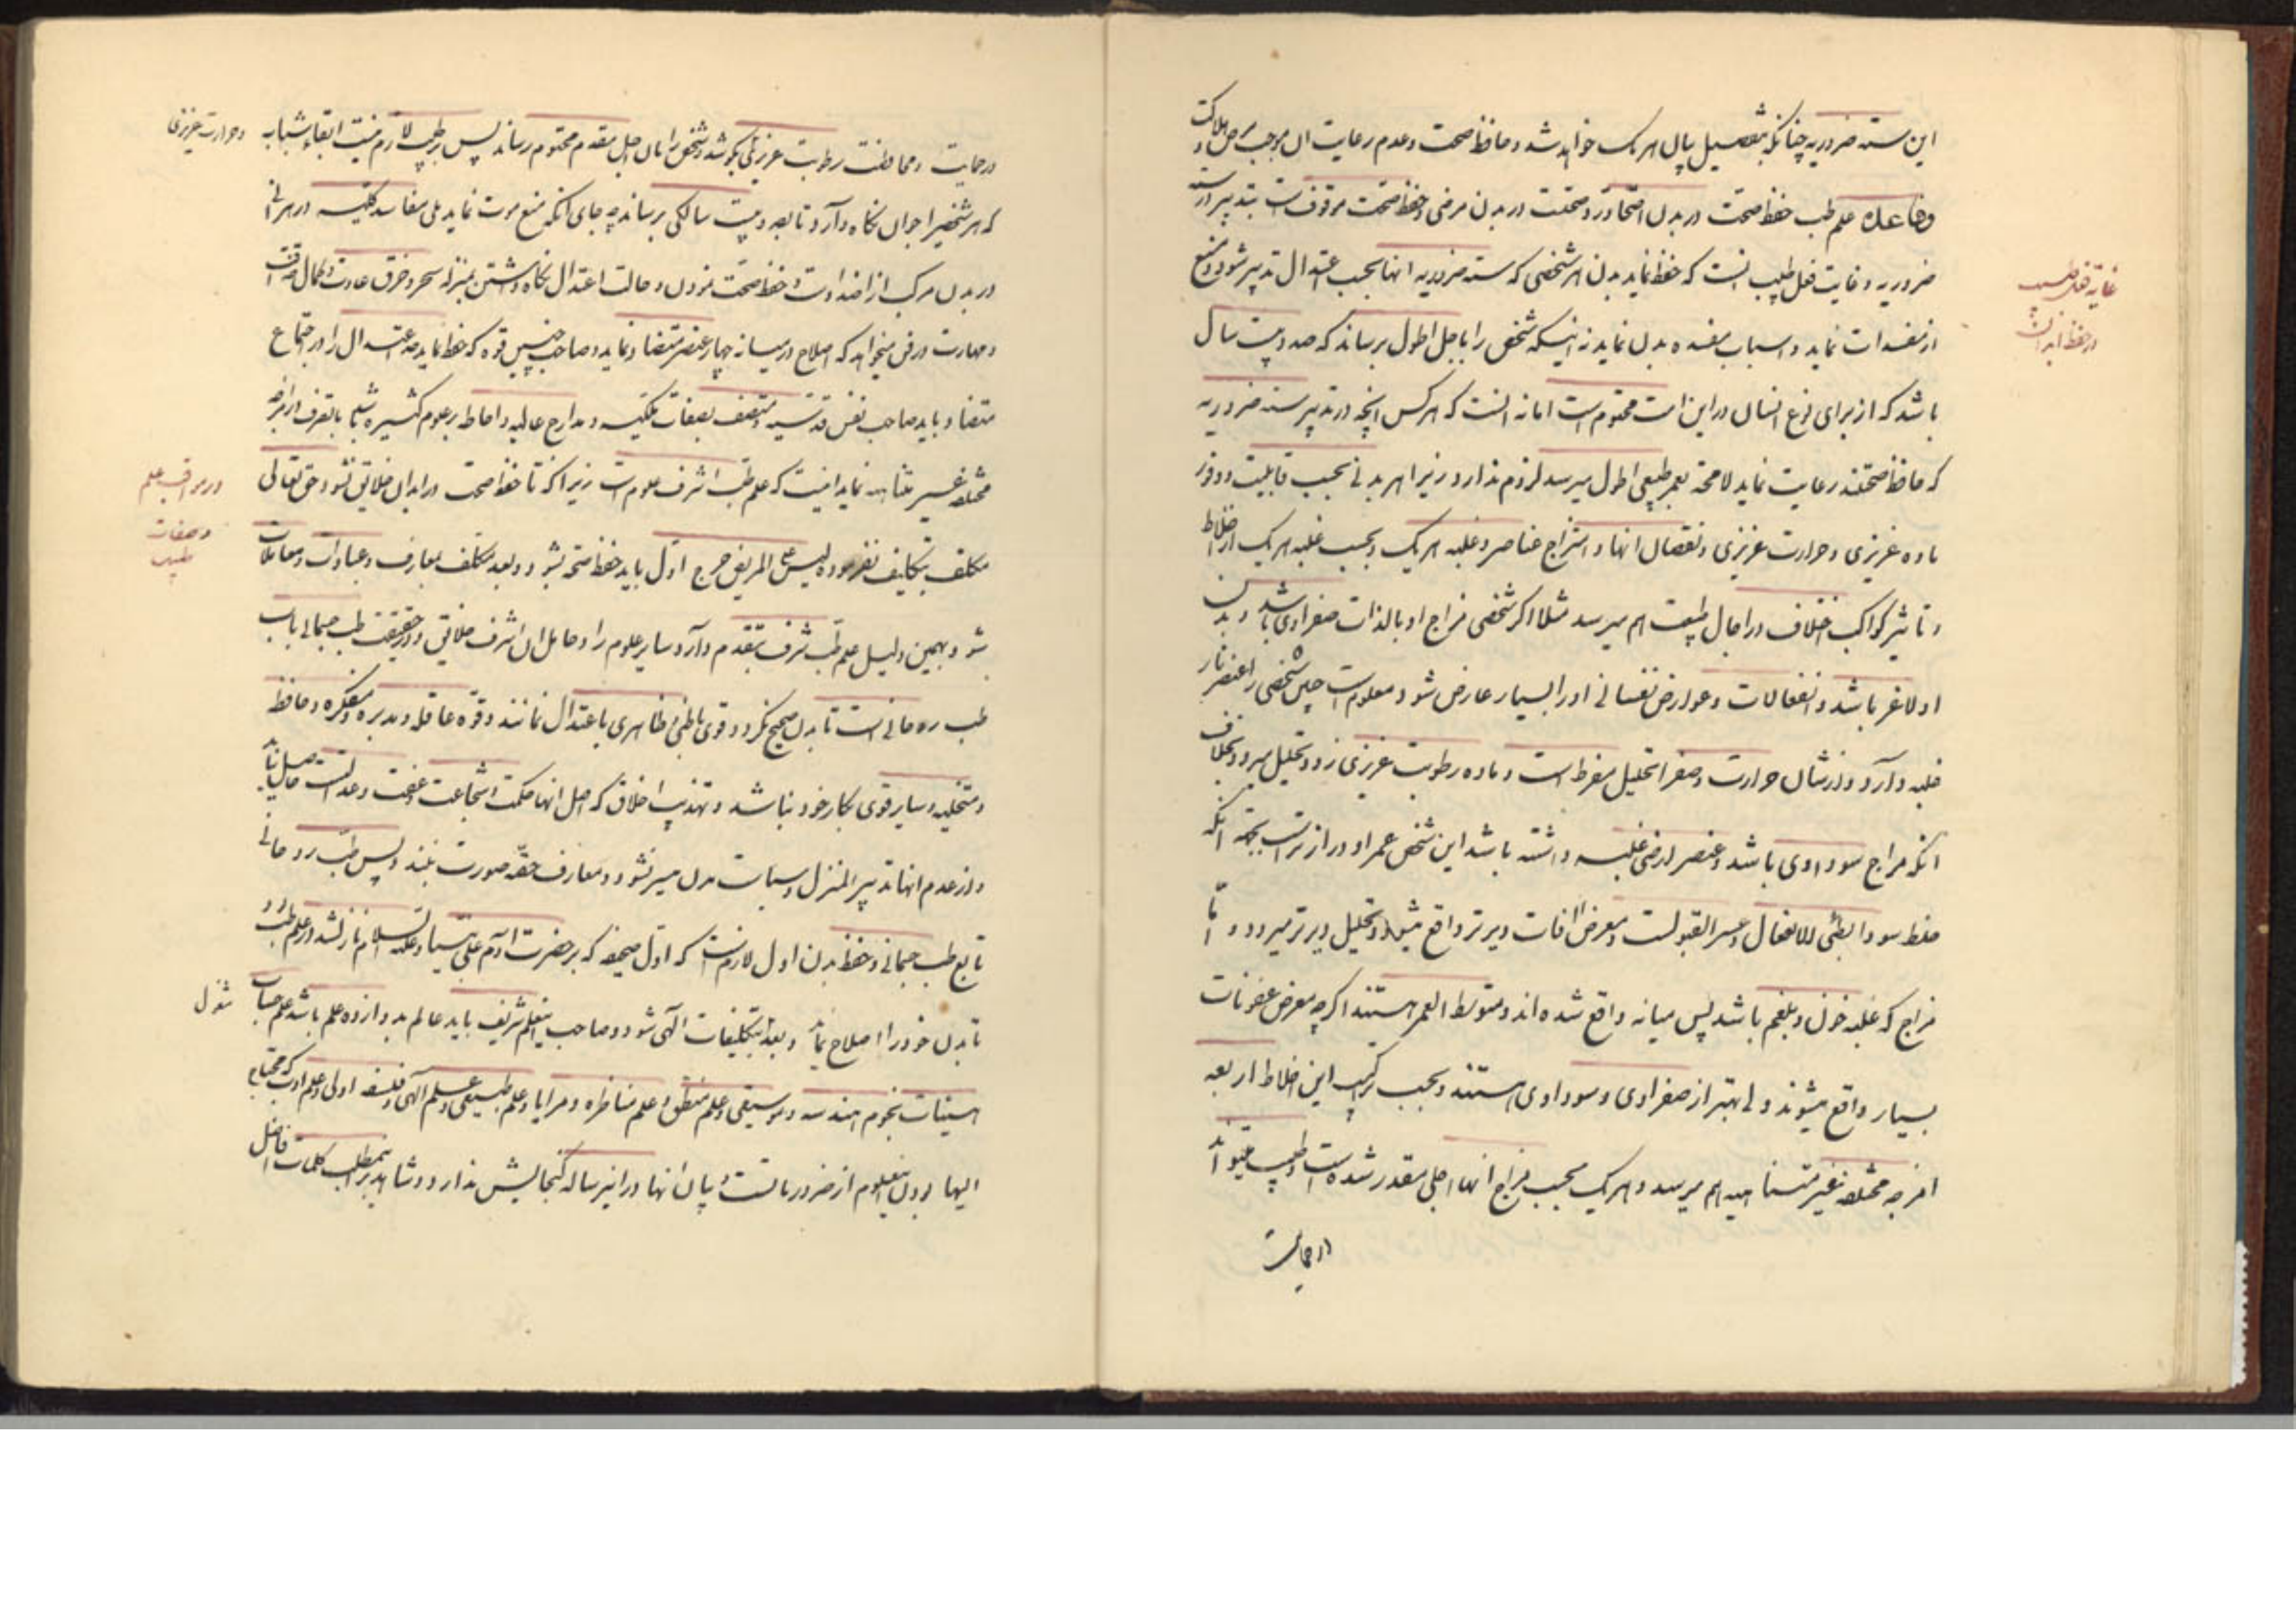 این سته ضروریه چنانکه بتفصیل بیان هر یک خواهد شد و حافظ صحت و عدم رعایت آن موجب مرض و هلاکت
و فاعله علم طب حفظ صحت در بدن اصحا و رد صحتت در بدن مرضی و حفظ صحت موقوفست بتدبیر در سته
ضروریه و غایت فعل طبیب انست که حفظ نماید بدن هر شخصی که سته ضروریه انها بحسب اعتدال تدبیر شود و منع
از مفسدات نماید و اسباب مفسده بدن نماید نه اینکه شخص را باجل اطول برساند که صد و بیست سال
باشد که از برای نوع انسان در این امت محتوم است اما نه انست که هر کس انچه در تدبیر سته ضروریه
که حافظ صحتند رعایت نماید لا محة بعمر طبیعی اطول میرسد لزوم ندارد زیرا هر بدنی بحسب قابلیت و وفور
ماده غریزی و حرارت غریزی و نقصان انها و امتزاج عناصر و غلبه هر یک و بحسب غلبه هر یک از اخلاط
و تاثیر کواکب اختلاف در اجال طبیعت بهم میرسد مثلا اگر شخصی مزاج او بالذات صفراوی باشد و بدن
او لاغر باشد و انفعالات و عوارض نفسانی او را بسیار عارض شود و معلوم است چنین شخصی را عنصر نار
غلبه دارد و از شان حرارت و صفرا تحلیل مفرط است و ماده رطوبت غریزی زود تحلیل میرود و بخلاف
انکه مزاج سوداوی باشد و عنصر ارضی غلبه داشته باشد این شخص عمر او دراز تر است بجهة انکه
خلط سودا بطئی الانفعال و عسر القبولست و معرض افات دیرتر واقع میشود و تحلیل دیرتر میرود و اما
مزاج که غلبه خون و بلغم باشد پس میانه واقع شده اند و متوسط العمر هستند اگر چه معرض عفونات
بسیار واقع میشوند ولی بهتر از صفراوی و سوداوی هستند و بحسب ترکیب این اخلاط اربعه
امزجه مختلفه غیر متناهیه بهم میرسد و هر یک بحسب مزاج انها اجلی مقدر شده است و طبیب میتواند
در حمایت
غایة فعل طبیب
در حفظ ابدان
در حمایت و محافظت رطوبت عزیزی بکوشد و شخص را بان اجل مقدم محتوم رساند پس بر طبیب لازم نیست ابقاء شباب
و حرارت غریزی
که هر شخصی را جوان نگاه دارد و تا بصد و بیست سالگی برساند چه جای انکه منع موت نماید بلی مفاسد کلیه در هر انی
در بدن مرکب از اضداد است و حفظ صحت نمودن و حالت اعتدال نگاه داشتن بمنزله سحر و خرق عادت و کمال حذاقت
و مهارت در فن میخواهد که اصلاح در میانه چهار عنصر متضاد نماید و صاحب چنین قوه که حفظ نماید حد اعتدال را در اجتماع
متضاد باید صاحب نفس قدسیه و متصف بصفات ملکیه و مدارج عالیه و احاطه بر علوم کثیره باشد تا تصرف در امزجه
مختلفه غیر متناهیه نماید اینست که علم طب اشرف علوم است زیرا که تا حفظ صحت در ابدان خلایق نشود حق تعالی
در مراتب علم
و صفات
طبیب
مکلف بتکالیف نفرموده لیس علی المریض حرج اول باید حفظ صحة بشود و بعد مکلف بمعارف و عبادات و معاملات
شود و بهمین دلیل علم طب شرف تقدم دارد سایر علوم را و حامل ان اشرف خلایق و در حقیقت طب جسمانی باب
طب روحانی است تا بدن صحیح نگردد و قوی باطنی و ظاهری باعتدال نمانند و قوه عاقله و مدبره و متفکره و حافظه
و متخیله و سایر قوی بکار خود نباشد و تهذیب اخلاق که اصل انها حکمت و شجاعت و عفت و عدالت است حاصل نیاید
و از عدم انها تدبیر المنزل و سیاسات مدن میسر نشود و معارف حقه صورت نبندد پس طب روحانی
تابع طب جسمانی و حفظ بدن اول لازمست که اول صحیفه که بر حضرت آدم علی نبینا و علیه السلام نازل شد در علم طب بود
تا بدن خود را اصلاح نماید و بعد بتکلیفات الهی شود و صاحب اینعلم شریف باید عالم بدوازده علم باشد علم حساب
شغول
هیئات نجوم هندسه و موسیقی و علم منطق و علم مناظره و مرایا و علم طبیعی و علم الهی و فلسفه اولی و علم ادب که محتاج
الیها بودن اینعلوم از ضروریاتست و بیان انها در اینرساله گنجایش ندارد و شاهد بر اینمطلب کلمات افاضل